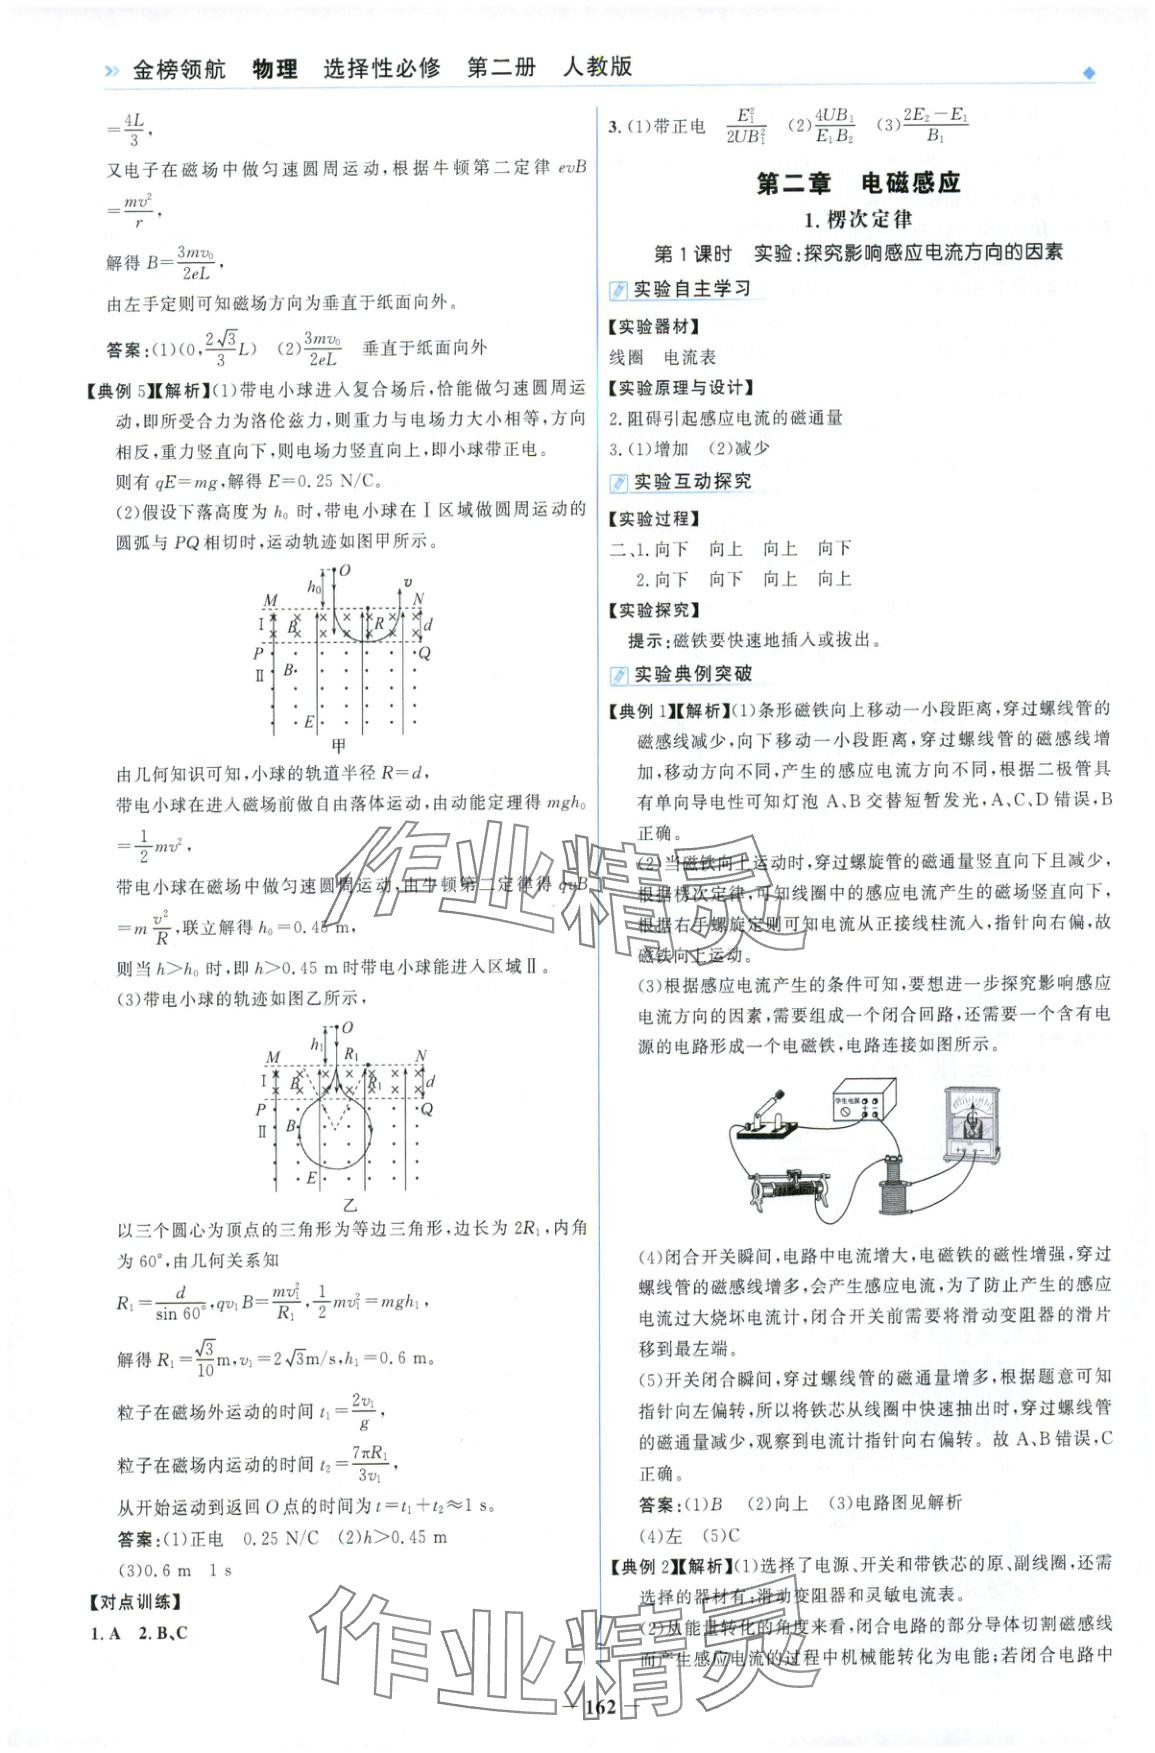 金榜领航　物理　选择性必修　第二册　人教版
=4L/3,
又电子在磁场中做匀速圆周运动,根据牛顿第二定律 evB
=mv²/r,
解得 B=3mv₀/2eL,
由左手定则可知磁场方向为垂直于纸面向外。
答案:(1)(0,2√3/3 L)　(2)3mv₀/2eL　垂直于纸面向外
【典例 5】【解析】(1)带电小球进入复合场后,恰能做匀速圆周运
动,即所受合力为洛伦兹力,则重力与电场力大小相等,方向
相反,重力竖直向下,则电场力竖直向上,即小球带正电。
则有 qE=mg,解得 E=0.25 N/C。
(2)假设下落高度为 h₀ 时,带电小球在Ⅰ区域做圆周运动的
圆弧与 PQ 相切时,运动轨迹如图甲所示。
O
h₀
v
M
N
Ⅰ
B
R
d
P
Q
Ⅱ
B
E
甲
由几何知识可知,小球的轨道半径 R=d,
带电小球在进入磁场前做自由落体运动,由动能定理得 mgh₀
=1/2 mv²,
带电小球在磁场中做匀速圆周运动,由牛顿第二定律得 qvB
=m v²/R,联立解得 h₀=0.45 m,
则当 h>h₀ 时,即 h>0.45 m 时带电小球能进入区域Ⅱ。
(3)带电小球的轨迹如图乙所示,
O
h₁
M
R₁
N
Ⅰ
B
R₁
d
P
Q
Ⅱ
B
E
乙
以三个圆心为顶点的三角形为等边三角形,边长为 2R₁,内角
为 60°,由几何关系知
R₁=d/sin 60°,qv₁B=mv₁²/R₁,1/2 mv₁²=mgh₁,
解得 R₁=√3/10 m,v₁=2√3m/s,h₁=0.6 m。
粒子在磁场外运动的时间 t₁=2v₁/g,
粒子在磁场内运动的时间 t₂=7πR₁/3v₁,
从开始运动到返回 O 点的时间为 t=t₁+t₂≈1 s。
答案:(1)正电　0.25 N/C　(2)h>0.45 m
(3)0.6 m　1 s
【对点训练】
1. A　2. B、C
3. (1)带正电　E₁²/2UB₁²　(2)4UB₁/E₁B₂　(3)2E₂−E₁/B₁
第二章　电磁感应
1. 楞次定律
第 1 课时　实验:探究影响感应电流方向的因素
实验自主学习
【实验器材】
线圈　电流表
【实验原理与设计】
2. 阻碍引起感应电流的磁通量
3. (1)增加　(2)减少
实验互动探究
【实验过程】
二、1. 向下　向上　向上　向下
2. 向下　向下　向上　向上
【实验探究】
提示:磁铁要快速地插入或拔出。
实验典例突破
【典例 1】【解析】(1)条形磁铁向上移动一小段距离,穿过螺线管的
磁感线减少,向下移动一小段距离,穿过螺线管的磁感线增
加,移动方向不同,产生的感应电流方向不同,根据二极管具
有单向导电性可知灯泡 A、B 交替短暂发光,A、C、D 错误,B
正确。
(2)当磁铁向上运动时,穿过螺旋管的磁通量竖直向下且减少,
根据楞次定律,可知线圈中的感应电流产生的磁场竖直向下,
根据右手螺旋定则可知电流从正接线柱流入,指针向右偏,故
磁铁向上运动。
(3)根据感应电流产生的条件可知,要想进一步探究影响感应
电流方向的因素,需要组成一个闭合回路,还需要一个含有电
源的电路形成一个电磁铁,电路连接如图所示。
学生电源
(4)闭合开关瞬间,电路中电流增大,电磁铁的磁性增强,穿过
螺线管的磁感线增多,会产生感应电流,为了防止产生的感应
电流过大烧坏电流计,闭合开关前需要将滑动变阻器的滑片
移到最左端。
(5)开关闭合瞬间,穿过螺线管的磁通量增多,根据题意可知
指针向左偏转,所以将铁芯从线圈中快速抽出时,穿过螺线管
的磁通量减少,观察到电流计指针向右偏转。故 A、B 错误,C
正确。
答案:(1)B　(2)向上　(3)电路图见解析
(4)左　(5)C
【典例 2】【解析】(1)选择了电源、开关和带铁芯的原、副线圈,还需
选择的器材有:滑动变阻器和灵敏电流表。
(2)从能量转化的角度来看,闭合电路的部分导体切割磁感线
而产生感应电流的过程中机械能转化为电能;若闭合电路中
作业精灵
作业精灵
— 162 —